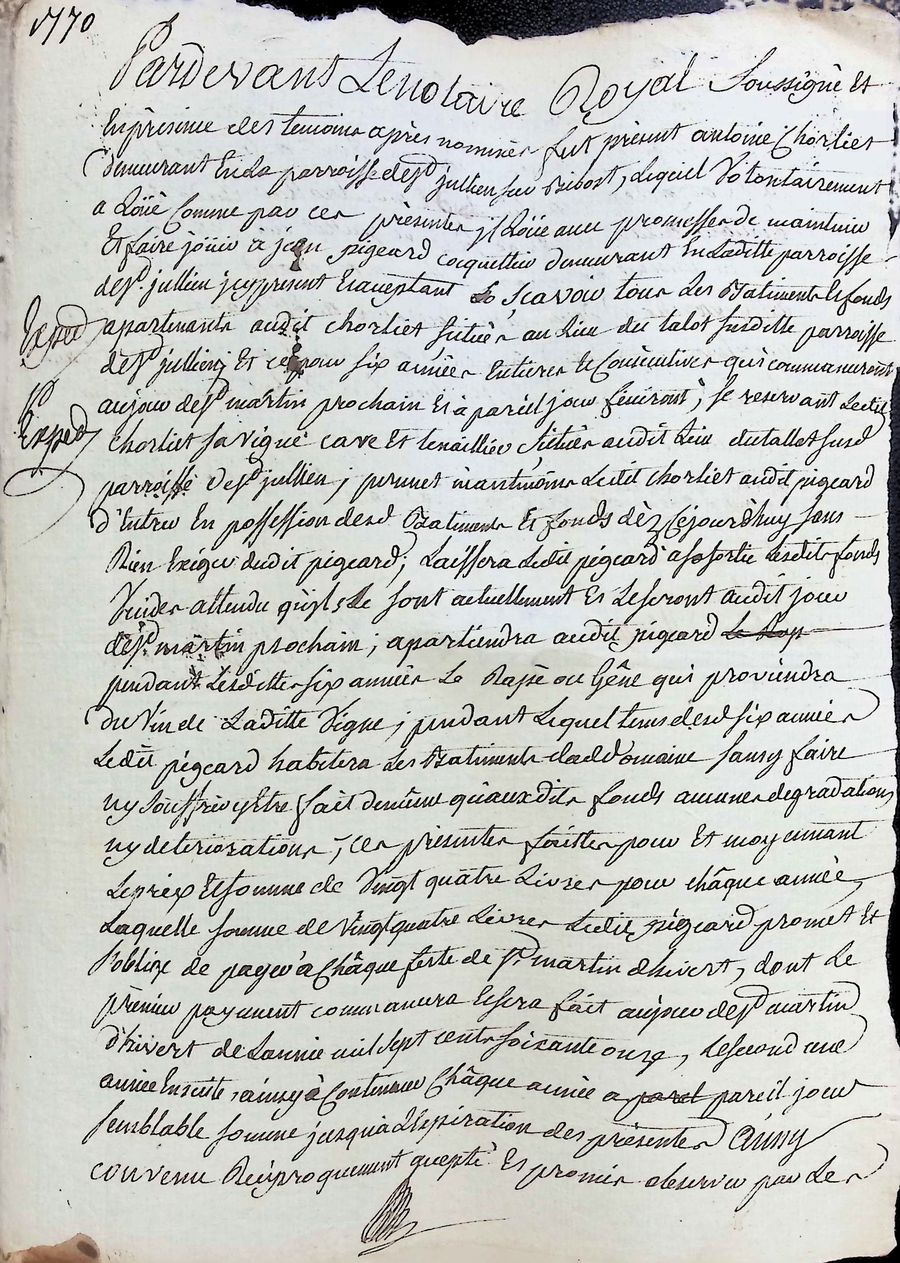 1770
Pardevant Le notaire Royal Soussigné Et
En présence des temoins après nommés fut présent antoine Chorliet
demeurant En La parroisse de st jullien sur Bibost, Lequel Volontairement
a Loüé Comme par ces présentes jl Loüe avec promesse de maintenir
Et faire joüir à jean pigeard cocquettier demeurant En Laditte parroisse
de st jullien jcy present Et aceptant Scavoir tous Les Batiments Et fonds
apartenants audit Chorliet Scitués au Lieu du talot susditte parroisse
de st jullien Et ce pour six années Entieres Et Consécutives qui commanceront
aujour de st martin prochain Et à pareil jour finiront; se reservant Ledit
Chorliet sa vigne cave Et tenaillier Scitués audit Lieu du tallot susd
parroisse de st jullien; permet néantmoins Ledit chorliet audit pigeard
d'Entrer En possession desd Batiments Et fonds dèz Cejourd'huy sans
Rien Exiger dudit pigeard; Laissera Ledit pigeard a sa sortie Lesdits fonds
Vuides attendu qu'jls Le sont actuellement Et Le seront audit jour
de st martin prochain; apartiendra audit pigeard
pendant Lesdittes six années La Rapé ou Gêne qui proviendra
du Vin de Laditte Vigne; pendant Lequel tems desd six années
Ledit pigeard habitera Les Batiments dudd Domaine sans y faire
ny souffrir y Etre fait de même qu'auxdits fonds aucunes degradations
ny deteriorations; ces présentes faittes pour Et moyennant
Le prix Et somme de Vingt quatre Livres pour châque année,
Laquelle somme de Vingt quatre Livres Ledit pigeard promet Et
s'oblige de payer à Châque feste de st martin d'hivert, dont Le
prémier payement commancera Et sera fait aujour de st martin
d'hivert de L'année mil sept cent soixante onze, Le second une
année Ensuite, ainsy à Continuer Châque année a parel pareil jour
semblable somme jusqu'à L'Expiration des présentes Ainsy
convenu Réciproquement aceptè Et promis observer par Les
Exped
Exped